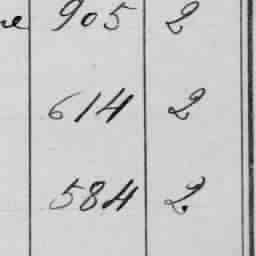 905 2
614 2
584 2